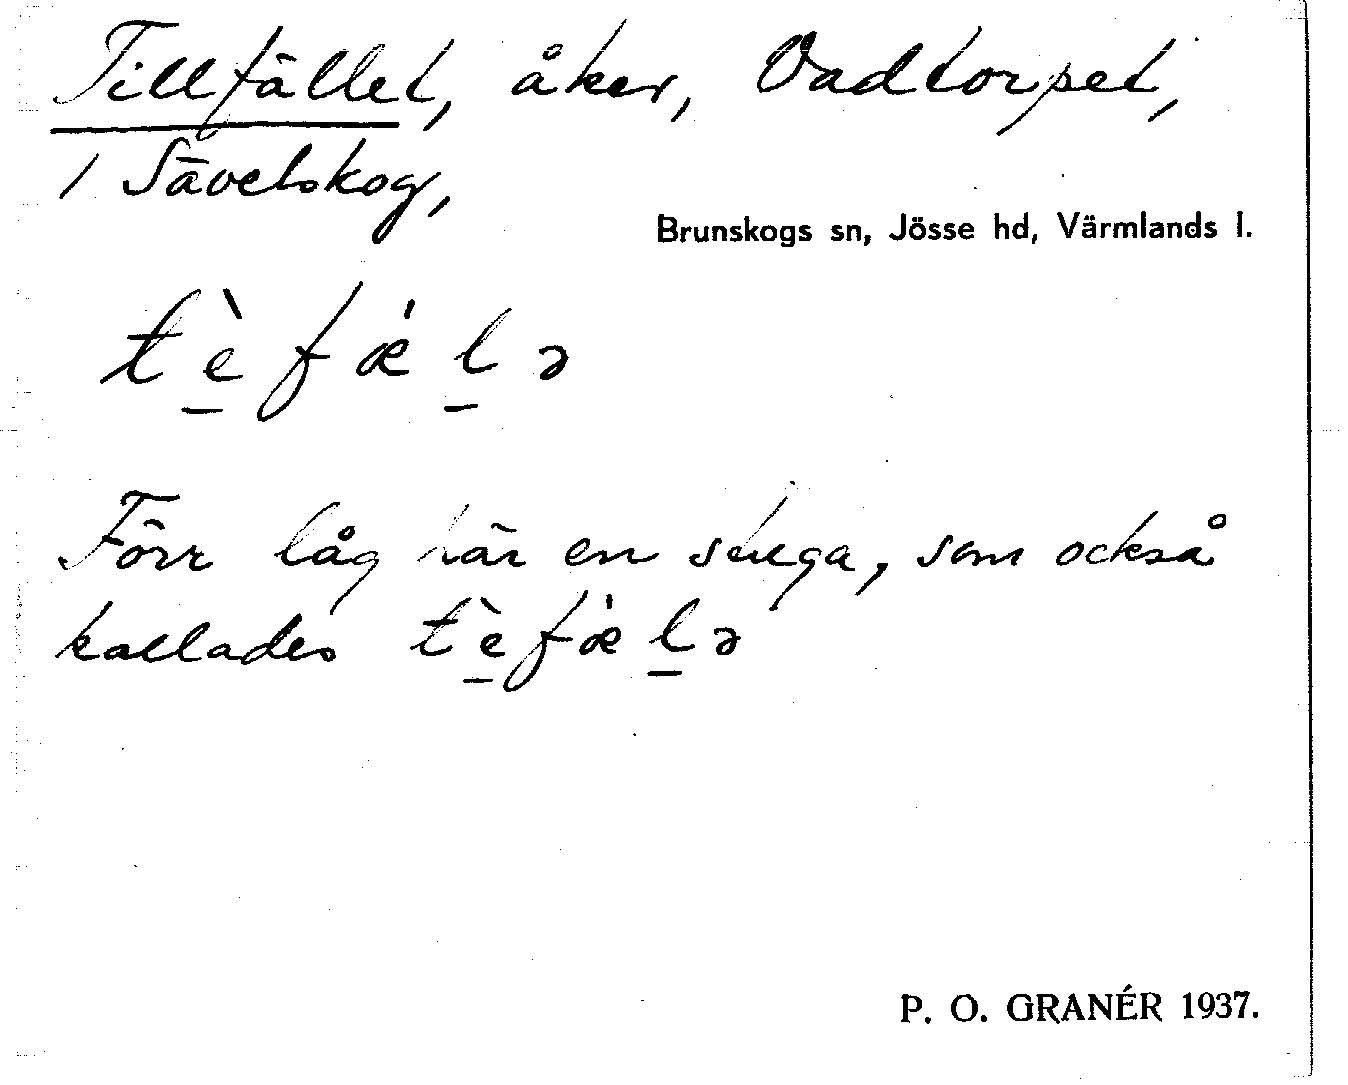 Tillfället, åker, Vadtorpet,
1 Sävelskog,
Brunskogs sn, Jösse hd, Värmlands l.
tè̲fǽl̲ə
Förr låg här en stuga, som också
kallades tè̲fǽl̲ə
P. O. GRANÉR 1937.